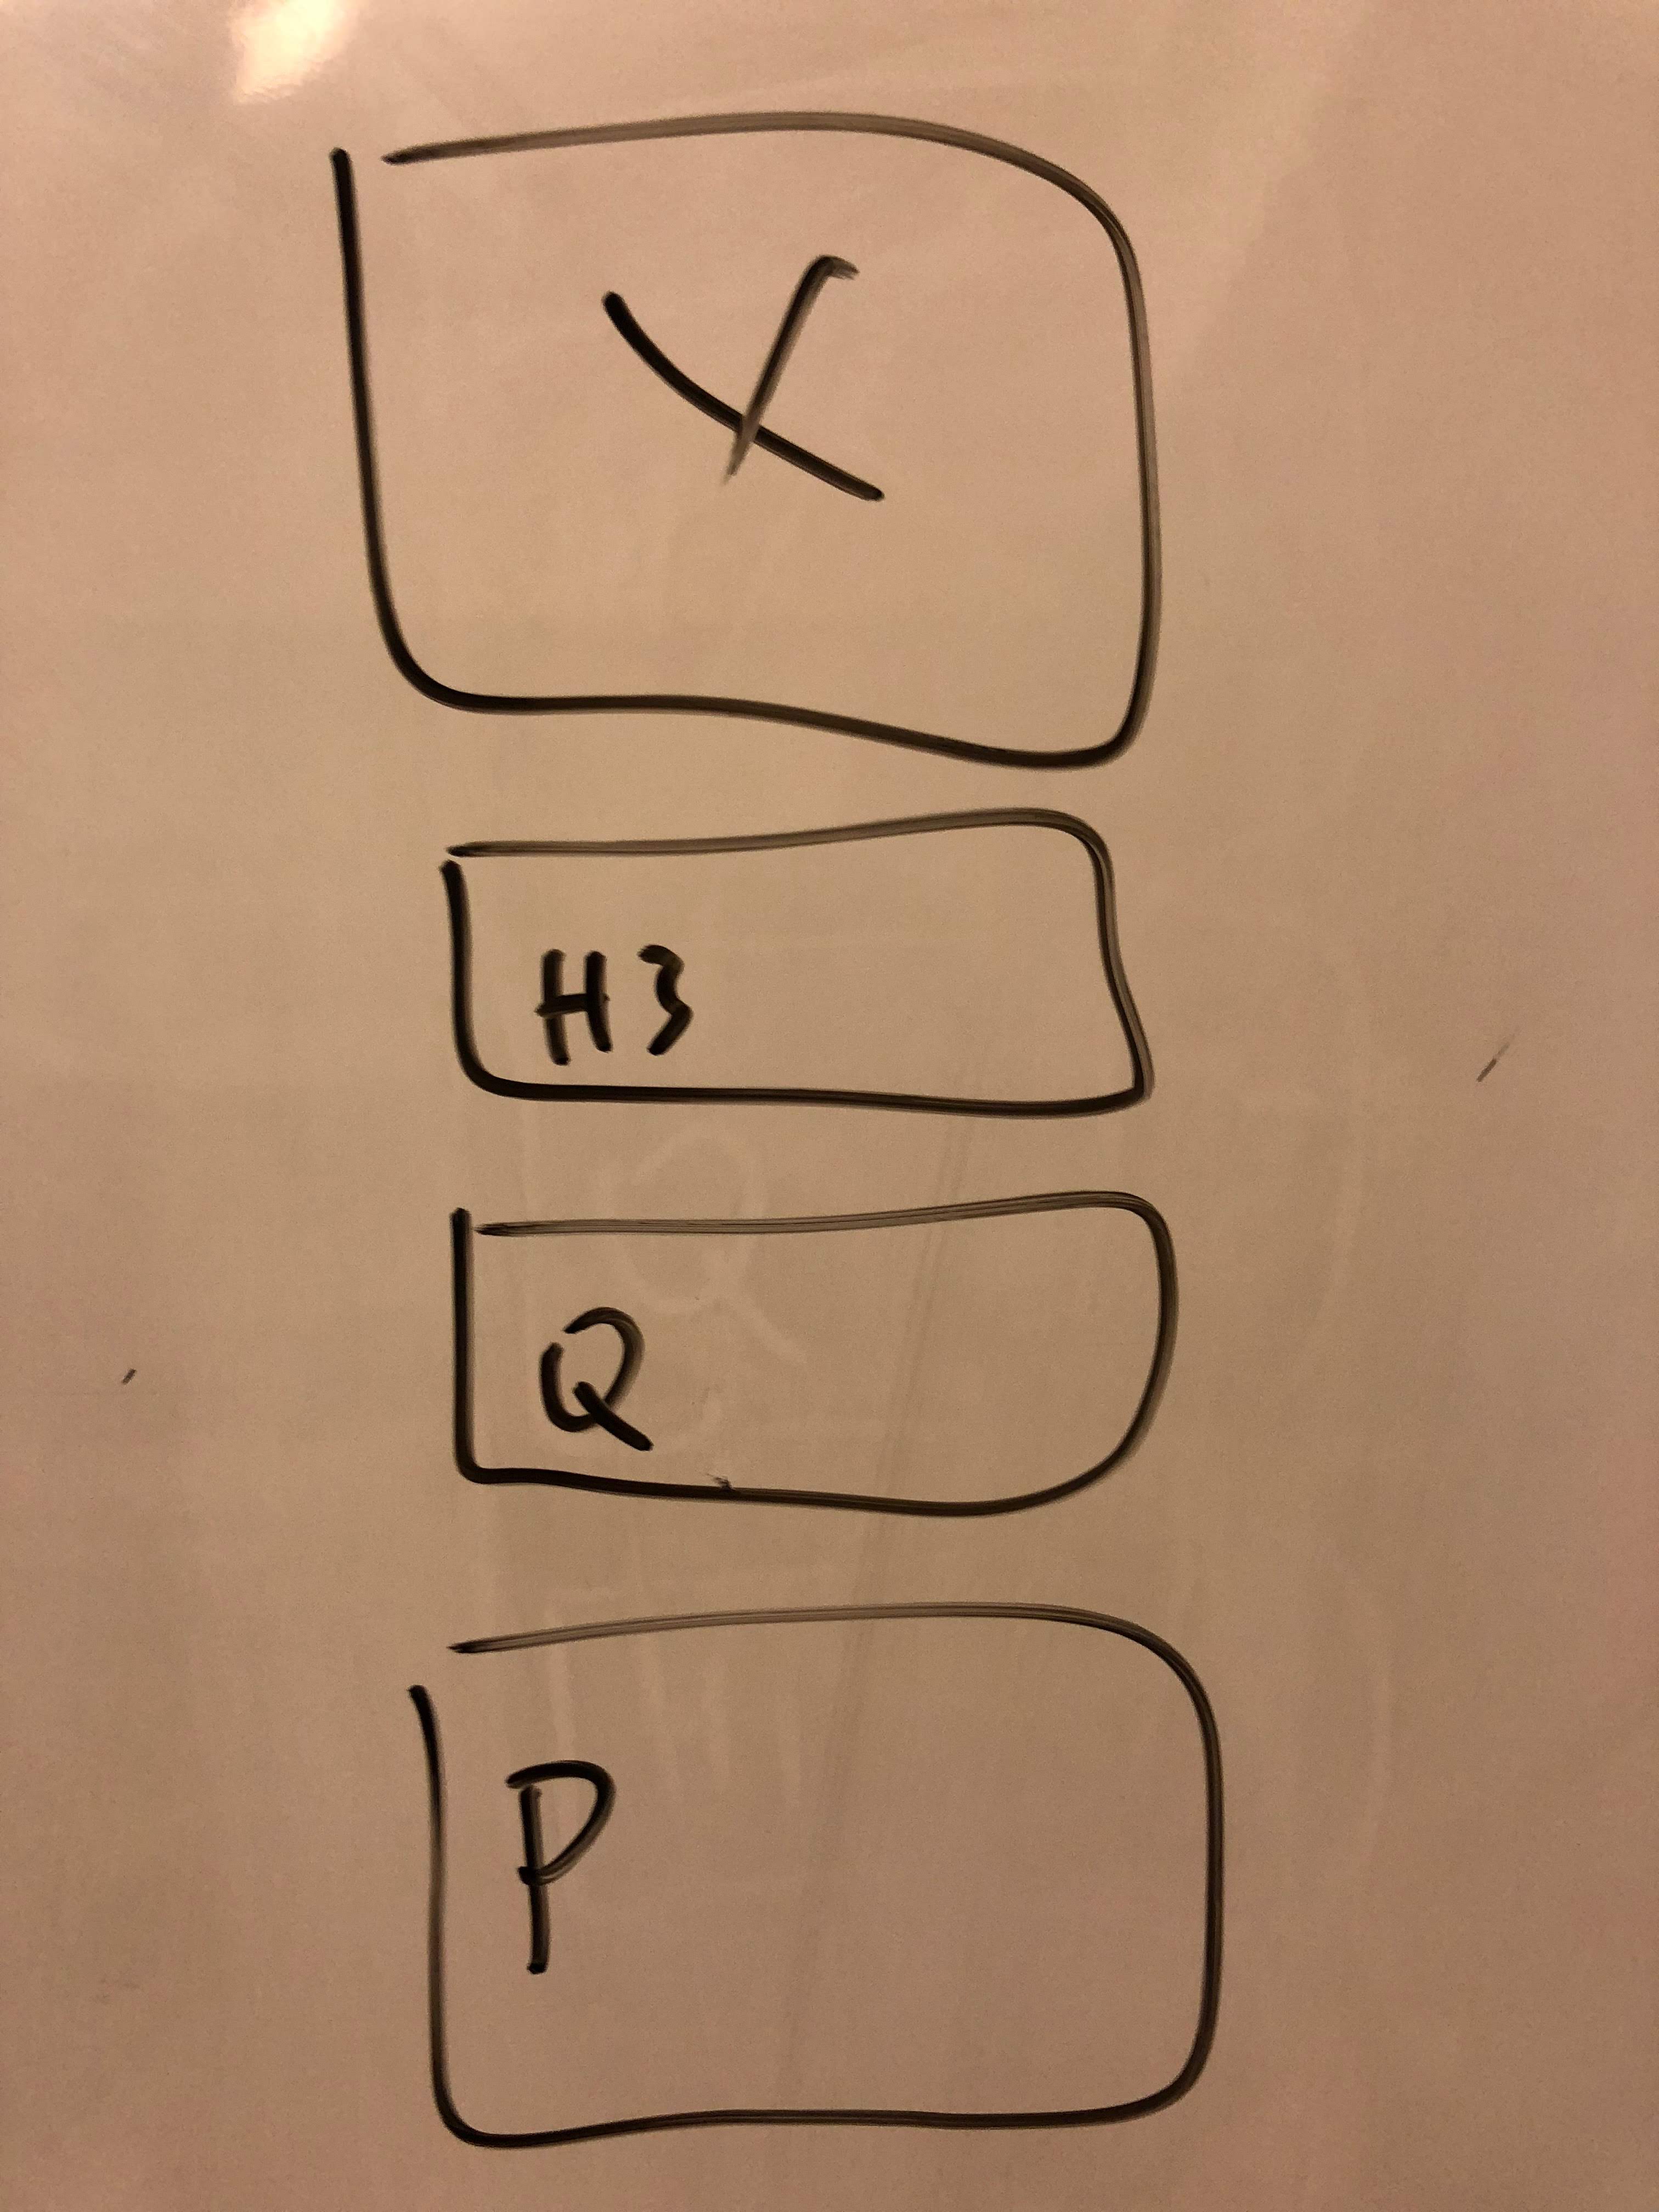 X
H3
Q
P